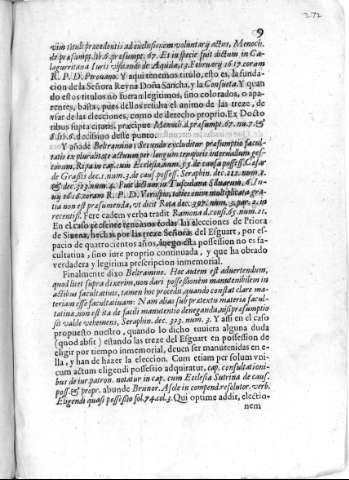 272
9
vim tituli præcedentis ad exclusionem voluntarij actus, Menoch.
de præsumpt. lib.6. præsumpt. 67. Et in specie fuit dictum in Ca-
lagurritana Iuris visitandi de Aquila, 13. February 1617. coram
R. P. D. Pirouano. Y aqui tenemos titulo, esto es, la funda-
cion de la Señora Reyna Doña Sancha, y la Consueta. Y quan-
do estos titulos no fueran legitimos, sino colorados, o apa-
rentes, basta, pues dellos resulta el animo de las treze, de
vsar de las elecciones, como de derecho proprio. Ex Docto
ribus supra citatis, præcipue Menoch. d. præsumpt. 67. nu. 7. &
d. lib. 6. decissimo deste punto.
Y añade Beltramino: Secundo excluditur præsumptio facul-
tatis ex pluralitate actuum per longum temporis internallum gesto-
rum, Ripa in cap. cum Ecclesia num. 53. de causa posses. Cæsar
de Grassis dec. 1. num. 3. de caus. possess. Seraphin. dec. 212. num. 8.
& dec. 313. num. 4. Fuit dictum in Tusculana Siluarum, 6. Iu-
nij 1616. coram R. P. D. Virisepio, vbi ex enim multiplicata gra-
tia non est præsumenda, vt dicit Rota dec. 397. num. 3. par. 2. in
recentiss. Fere cadem verba tradit Ramona d. cons. 65. num. 21.
En el caso presente tenemos todas las elecciones de Priora
de Sixena, hechas por las treze Señoras del Esguart, por es-
pacio de quatrocientos años, luego esta possession no es fa-
cultatiua, sino iure proprio continuada, y que ha obrado
verdadera y legitima prescripcion inmemorial.
Finalmente dixo Beltramino. Hoc autem est aduertendum,
quod licet supra dixerim, non dari possessionem manutenibilem in
actibus facultatiuis, tamen hoc procedit, quando constat clare ma-
teriam esse facultatiuam: Nam alias sub prætextu materiæ facul-
tatiua, non est ita de facili manutentio deneganda, nisi præsumptio
sit valde vehemens, Seraphin. dec. 313. num. 3. Y assi en el caso
propuesto nuestro, quando lo dicho tuuiera alguna duda
(quod absit) estando las treze del Esguart en possession de
eligir por tiempo inmemorial, deuen ser manutenidas en e-
lla, y han de hazer la eleccion. Cum etiam per solum vni-
cum actum eligendi possessio adquiratur, cap. consultationi-
bus de iur. patron. notatur in cap. cum Ecclesia Sutrina de caus.
poss. & propr. abunde Brunor. A sole in compend. resolutor. verb.
Eligendi quasi possessio fol. 74. col. 3. Qui optime addit, electio-
nem